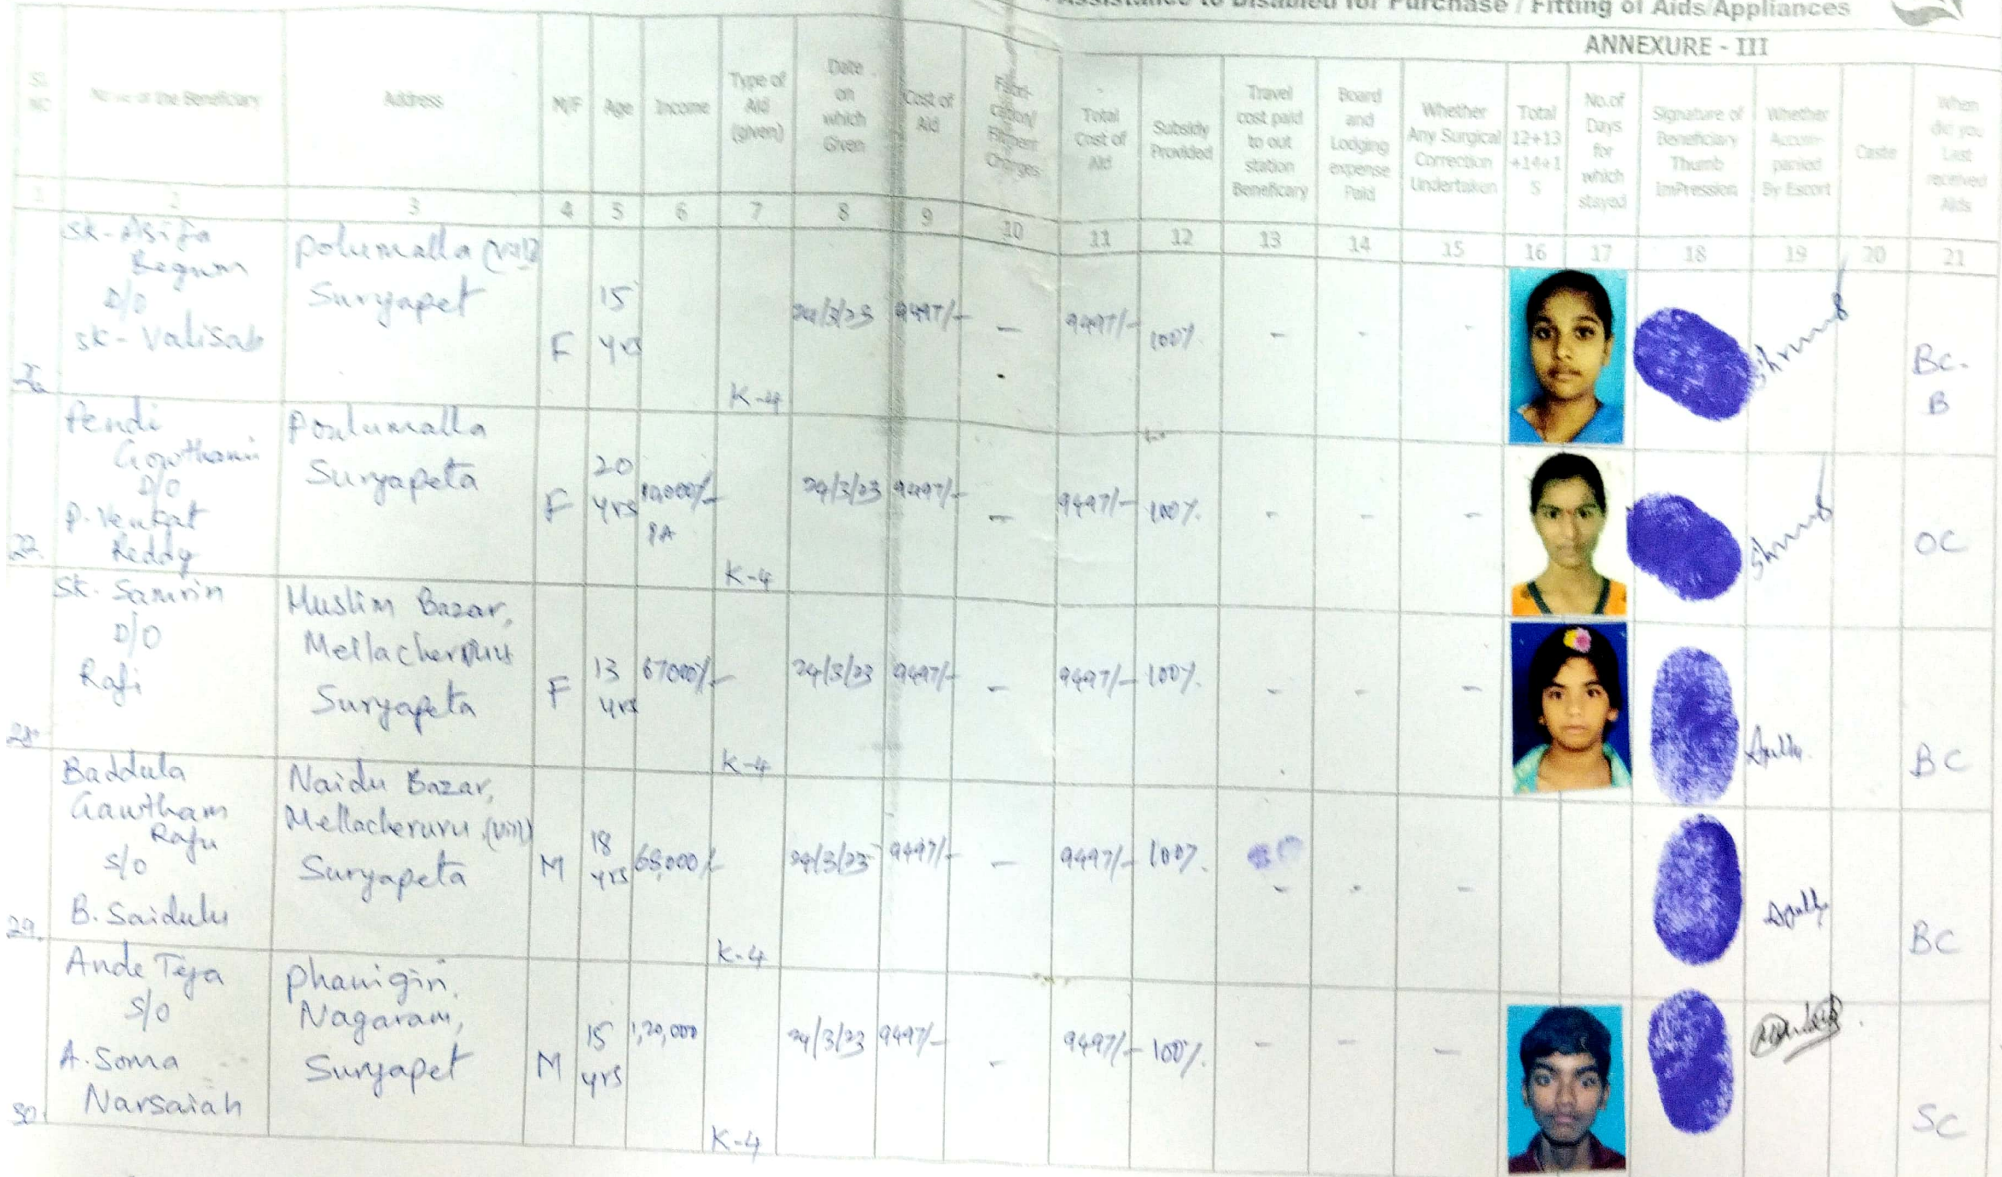 Assistance to Disabled for Purchase / Fitting of Aids/Appliances
ANNEXURE - III
Sl. NO
Name of the Beneficiary
Address
M/F
Age
Income
Type of Aid (given)
Date on which Given
Cost of Aid
Fabrication/ Fitment Charges
Total Cost of Aid
Subsidy Provided
Travel cost paid to out station Beneficary
Board and Lodging expense Paid
Whether Any Surgical Correction Undertaken
Total 12+13 +14+1 5
No.of Days for which stayed
Signature of Beneficiary Thumb ImPression
Whether Accom- panied By Escort
Caste
When did you Last received Aids
1 2 3 4 5 6 7 8 9 10 11 12 13 14 15 16 17 18 19 20 21
Sk-Asifa
Begum
D/O
Sk-Valisab
Polumalla (Vill)
Suryapet
F
15
yrs
K-4
24/3/23
9497/-
-
9497/-
100%.
-
-
-
BC-
B
Pendi
Gowthami
D/O
P.Venkat
Reddy
Poulumalla
Suryapeta
F
20
yrs
10,000/-
PA
K-4
24/3/23
9497/-
-
9497/-
100%.
-
-
-
OC
28
Sk. Samrin
D/O
Rafi
Muslim Bazar,
Mellacheruvu
Suryapeta
F
13
yrs
67000/-
K-4
24/3/23
9497/-
-
9497/-
100%.
-
-
-
BC
29.
Baddula
Gawtham
Raju
S/O
B.Saidulu
Naidu Bazar,
Mellacheruvu.(Vill)
Suryapeta
M
18
yrs
68,000/-
K-4
24/3/23
9497/-
-
9497/-
100%.
-
-
-
BC
30.
Ande Teja
S/O
A.Soma
Narsaiah
Phanigiri,
Nagaram,
Suryapet
M
15
yrs
1,20,000
K-4
24/3/23
9497/-
-
9497/-
100%.
-
-
-
SC